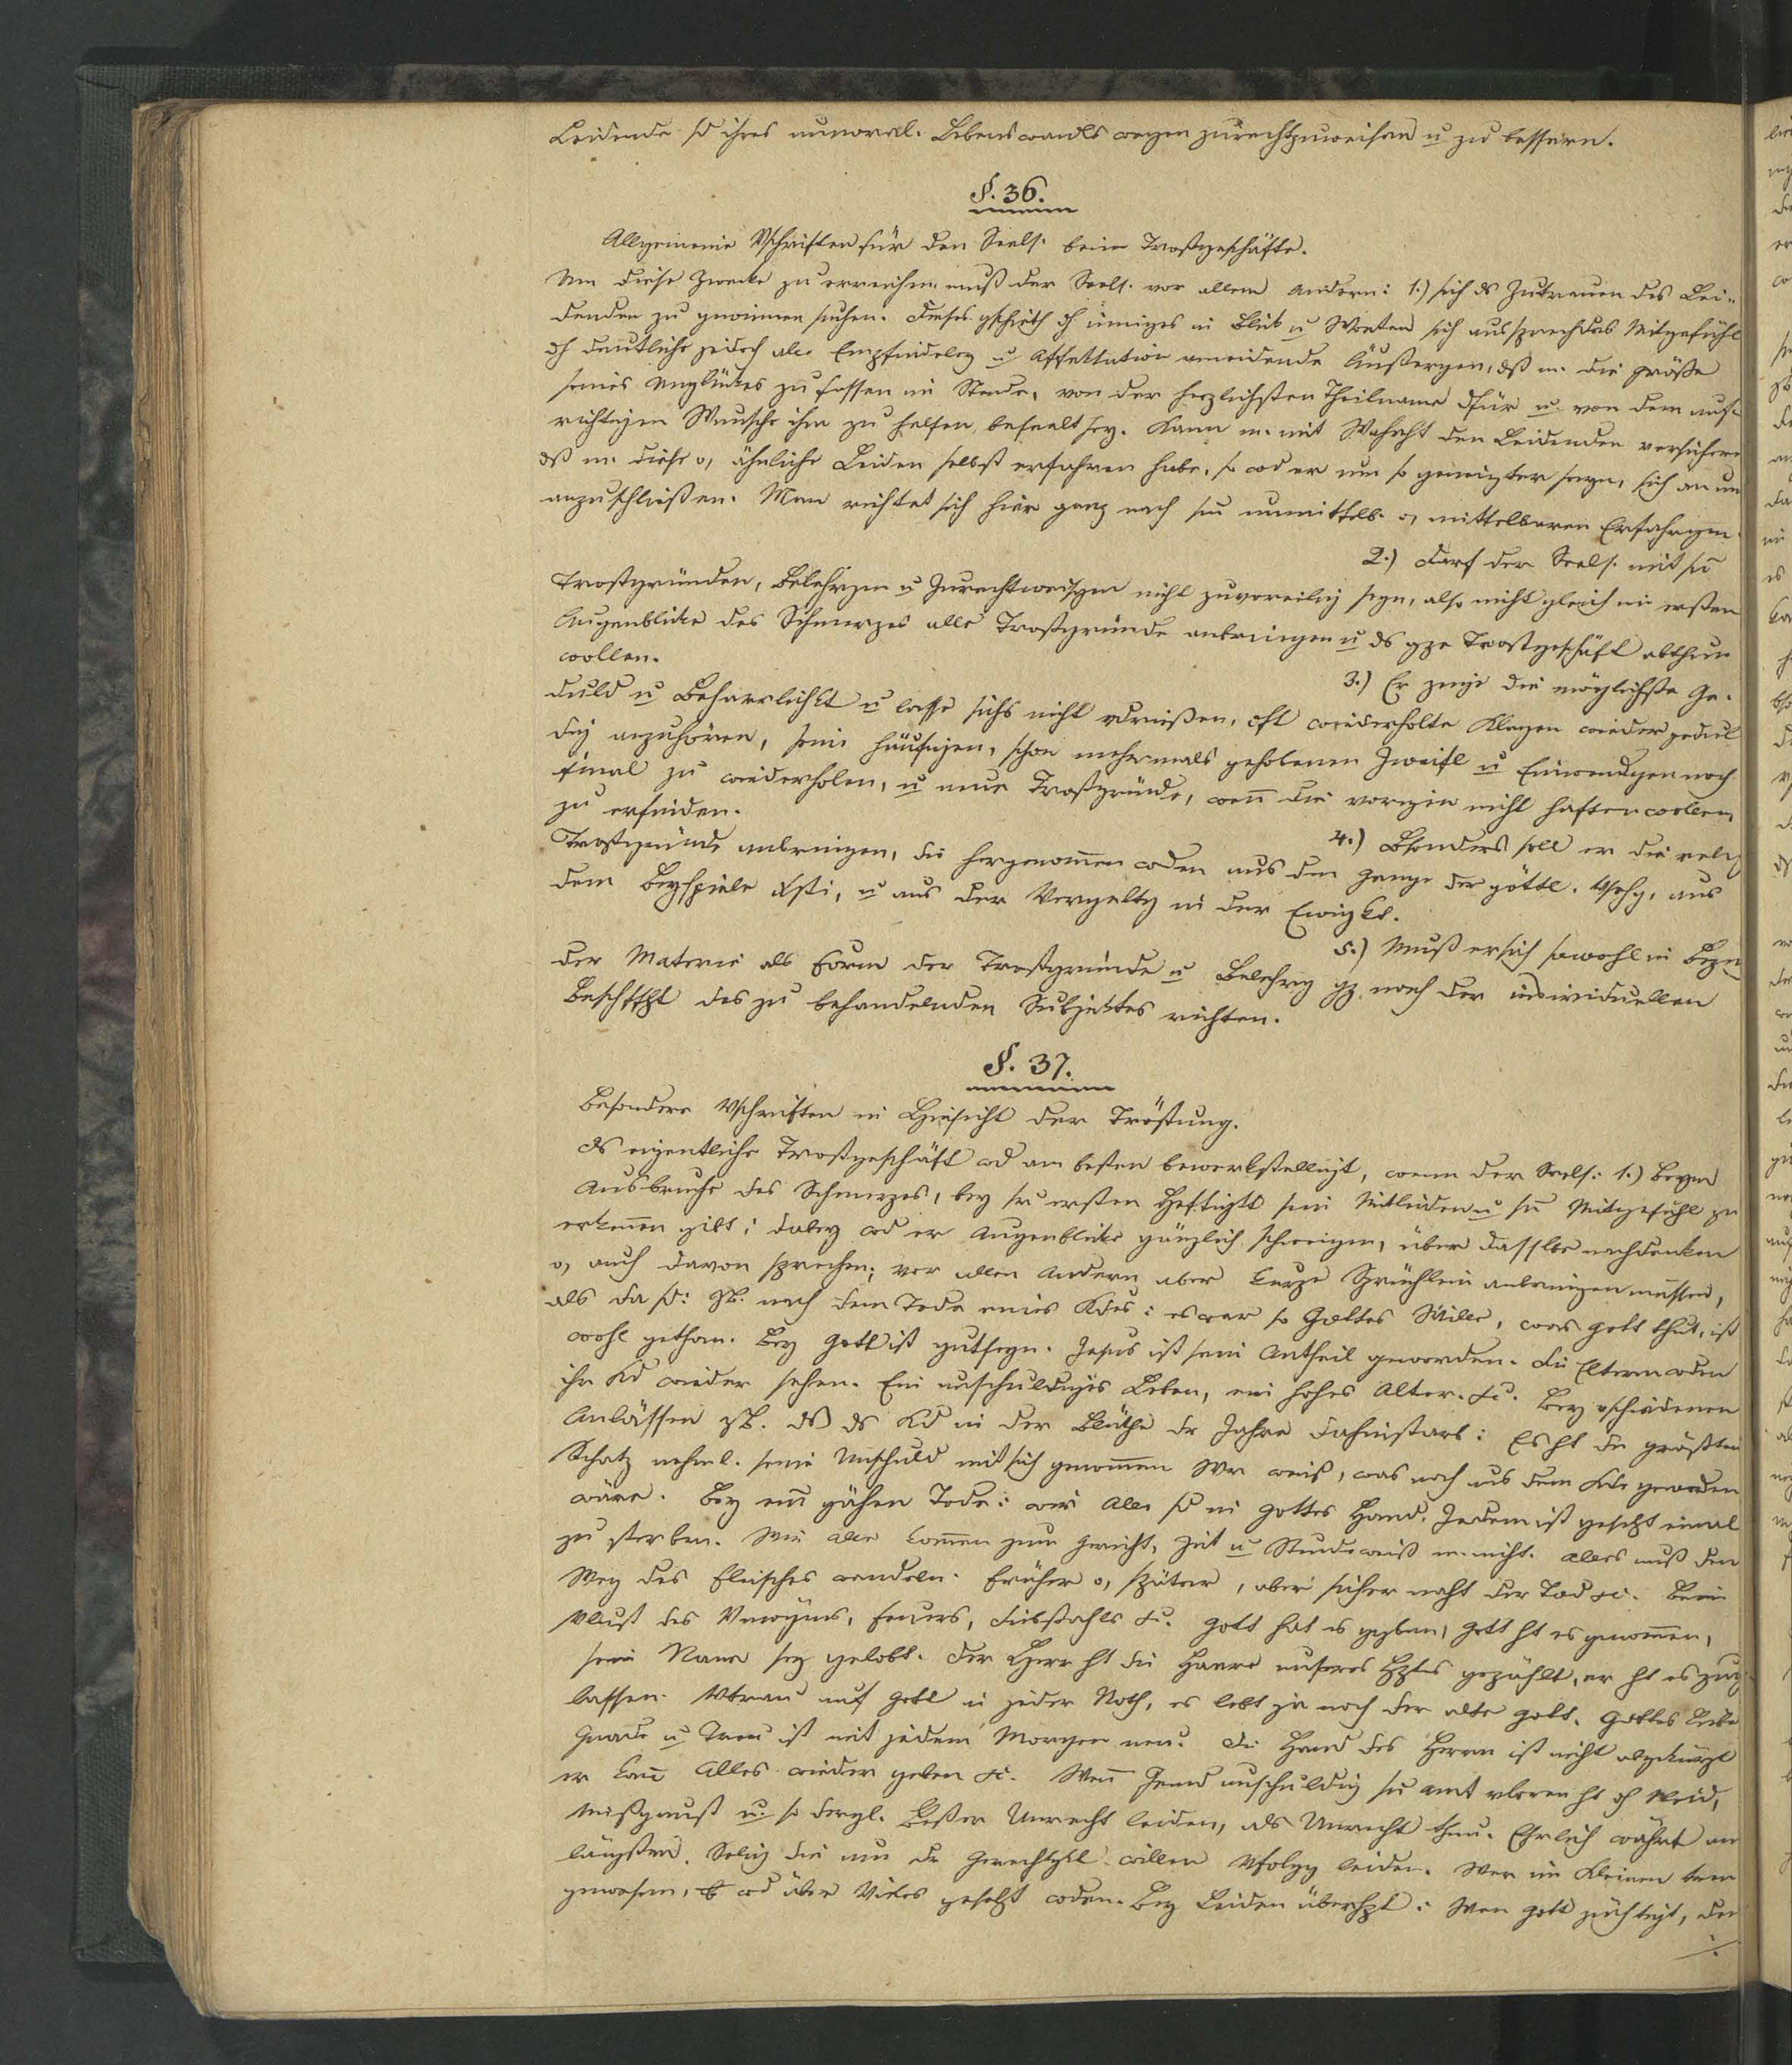 Leidende sd ihres unmoral. Lebenswandls wegen zurechtzuweisen u zu bessern.
§. 36.
Allgemeine Vschriften für den Seels. beim Trostgeschäfte.
Um diese Zwecke zu erreichen muß der Seels. vor allem andern: 1.) sich ds Zutrauen des Lei-
denden zu gewinnen suchen. Dieses gschieht dch inniges in Blick u Worten sich aussprechdes Mitgefühl
dch deutliche jedoch alle Empfindeley u Affektation meidende Äußergen, dß m. die Größe
seines Unglückes zu fassen im Stande, von der herzlichsten Theilname dfür u von dem auf-
richtigen Wunsche ihm zu helfen, beseelt sey. Kann m. mit Wahrht den Leidenden versichern
dß m. diese o, ähnliche Leiden selbst erfahren habe, so wd er um so geneigter seyn, sich an uns
anzuschließen. Man richtet sich hier ganz nach sn unmittelb. o, mittelbaren Erfahrgen.
2.) Darf der Seels. mit sn
Trostgründen, Belehrgen u Zurechtweisgen nicht zuvoreilig seyn, also nicht gleich im ersten
Augenblicke des Schmerzes alle Trostgründe anbringen u ds gze Trostgeschäft abthun
wollen.
3.) Er zeige die möglichste Ge-
duld u Beharrlichkt u lasse sichs nicht vdrießen, oft wiederholte Klagen wieder gedul
dig anzuhören, seine häufigen, schon mehrmals gehobenen Zweifl u Einwendgen noch
einmal zu wiederholen, u neue Trostgründe, wenn die vorigen nicht haften wollen
zu erfinden.
4.) Bsonders soll er die relig
Trostgründe anbringen, die hergenommen wden aus dem Gange der göttl. Vsehg, aus
dem Beyspiele Xsti, u aus der Vergeltg in der Ewigkt.
5.) Muß er sich sowohl in Bezug
der Materie als Form der Trostgründe u Belehrg gz nach der individuellen
Beschffht des zu behandelnden Subjektes richten.
§. 37.
Besondere Vschriften in Hinsicht der Tröstung.
Ds eigentliche Trostgeschäft wd am besten bewerkstelligt, wenn der Seels: 1.) Beym
Ausbruche des Schmerzes, bey sr ersten Heftigkt sein Mitleiden u sn Mitgefühl zu
erkennen gibt; dabey wd er Augenblicke gänzlich schweigen, über dasslbe nachdenken
o, auch davon sprechen; vor allem Andern aber kurze Sprüchlein anbringen müssen,
als da sd: zB. nach dem Tode eines Kdes: es war so Gottes Wille, was Gott thut, ist
wohl gethan. Bey Gott ist gutseyn. Jesus ist sein Antheil geworden. Die Eltern wden
ihr Kd wieder sehen. Ein unschuldiges Leben, ein hohes Alter. &c. Bey vschiedenen
Anlässen zB. dß ds Kd in der Blüthe dr Jahre dahinstarb: Es ht den größten
Schatz nehml. seine Unschuld mit sich genommen Wer weiß, was noch aus dem Kde geworden
wäre. Bey einem gähen Tode: wir Alle sd in Gottes Hand. Jedem ist gesetzt einmal
zu sterben. Wir alle kommen zum Gericht, Zeit u Stunde weiß m. nicht. Alles muß den
Weg des Fleisches wandeln. Früher o, später, aber sicher naht der Tod &c. Beim
Vlust des Vmögens, Feuers, Diebstahls &c. Gott hat es gegeben, Gott ht es genommen,
sein Name sey gelobt. Der Herr ht die Haare unseres Hptes gezählt, er ht es zuge-
lassen. Vtrau auf Gott in jeder Noth, es lebt ja noch der alte Gott. Gottes Liebe
Gnade u Treu ist mit jedem Morgen neu. Die Hand des Herrn ist nicht abgekürzt
er kann Alles wieder geben &c. Wenn Jemd unschuldig sn Amt vloren ht dch Neid,
Mißgunst u so dergl. Beßer Unrecht leiden, als Unrecht thun. Ehrlich währt am
längsten. Selig die um dr Gerechtgkt willen Vfolgg leiden. Wer im Kleinen treu
gewesen, wd über Vieles gesetzt wden. Bey Leiden überhpt: Wen Gott züchtigt, den